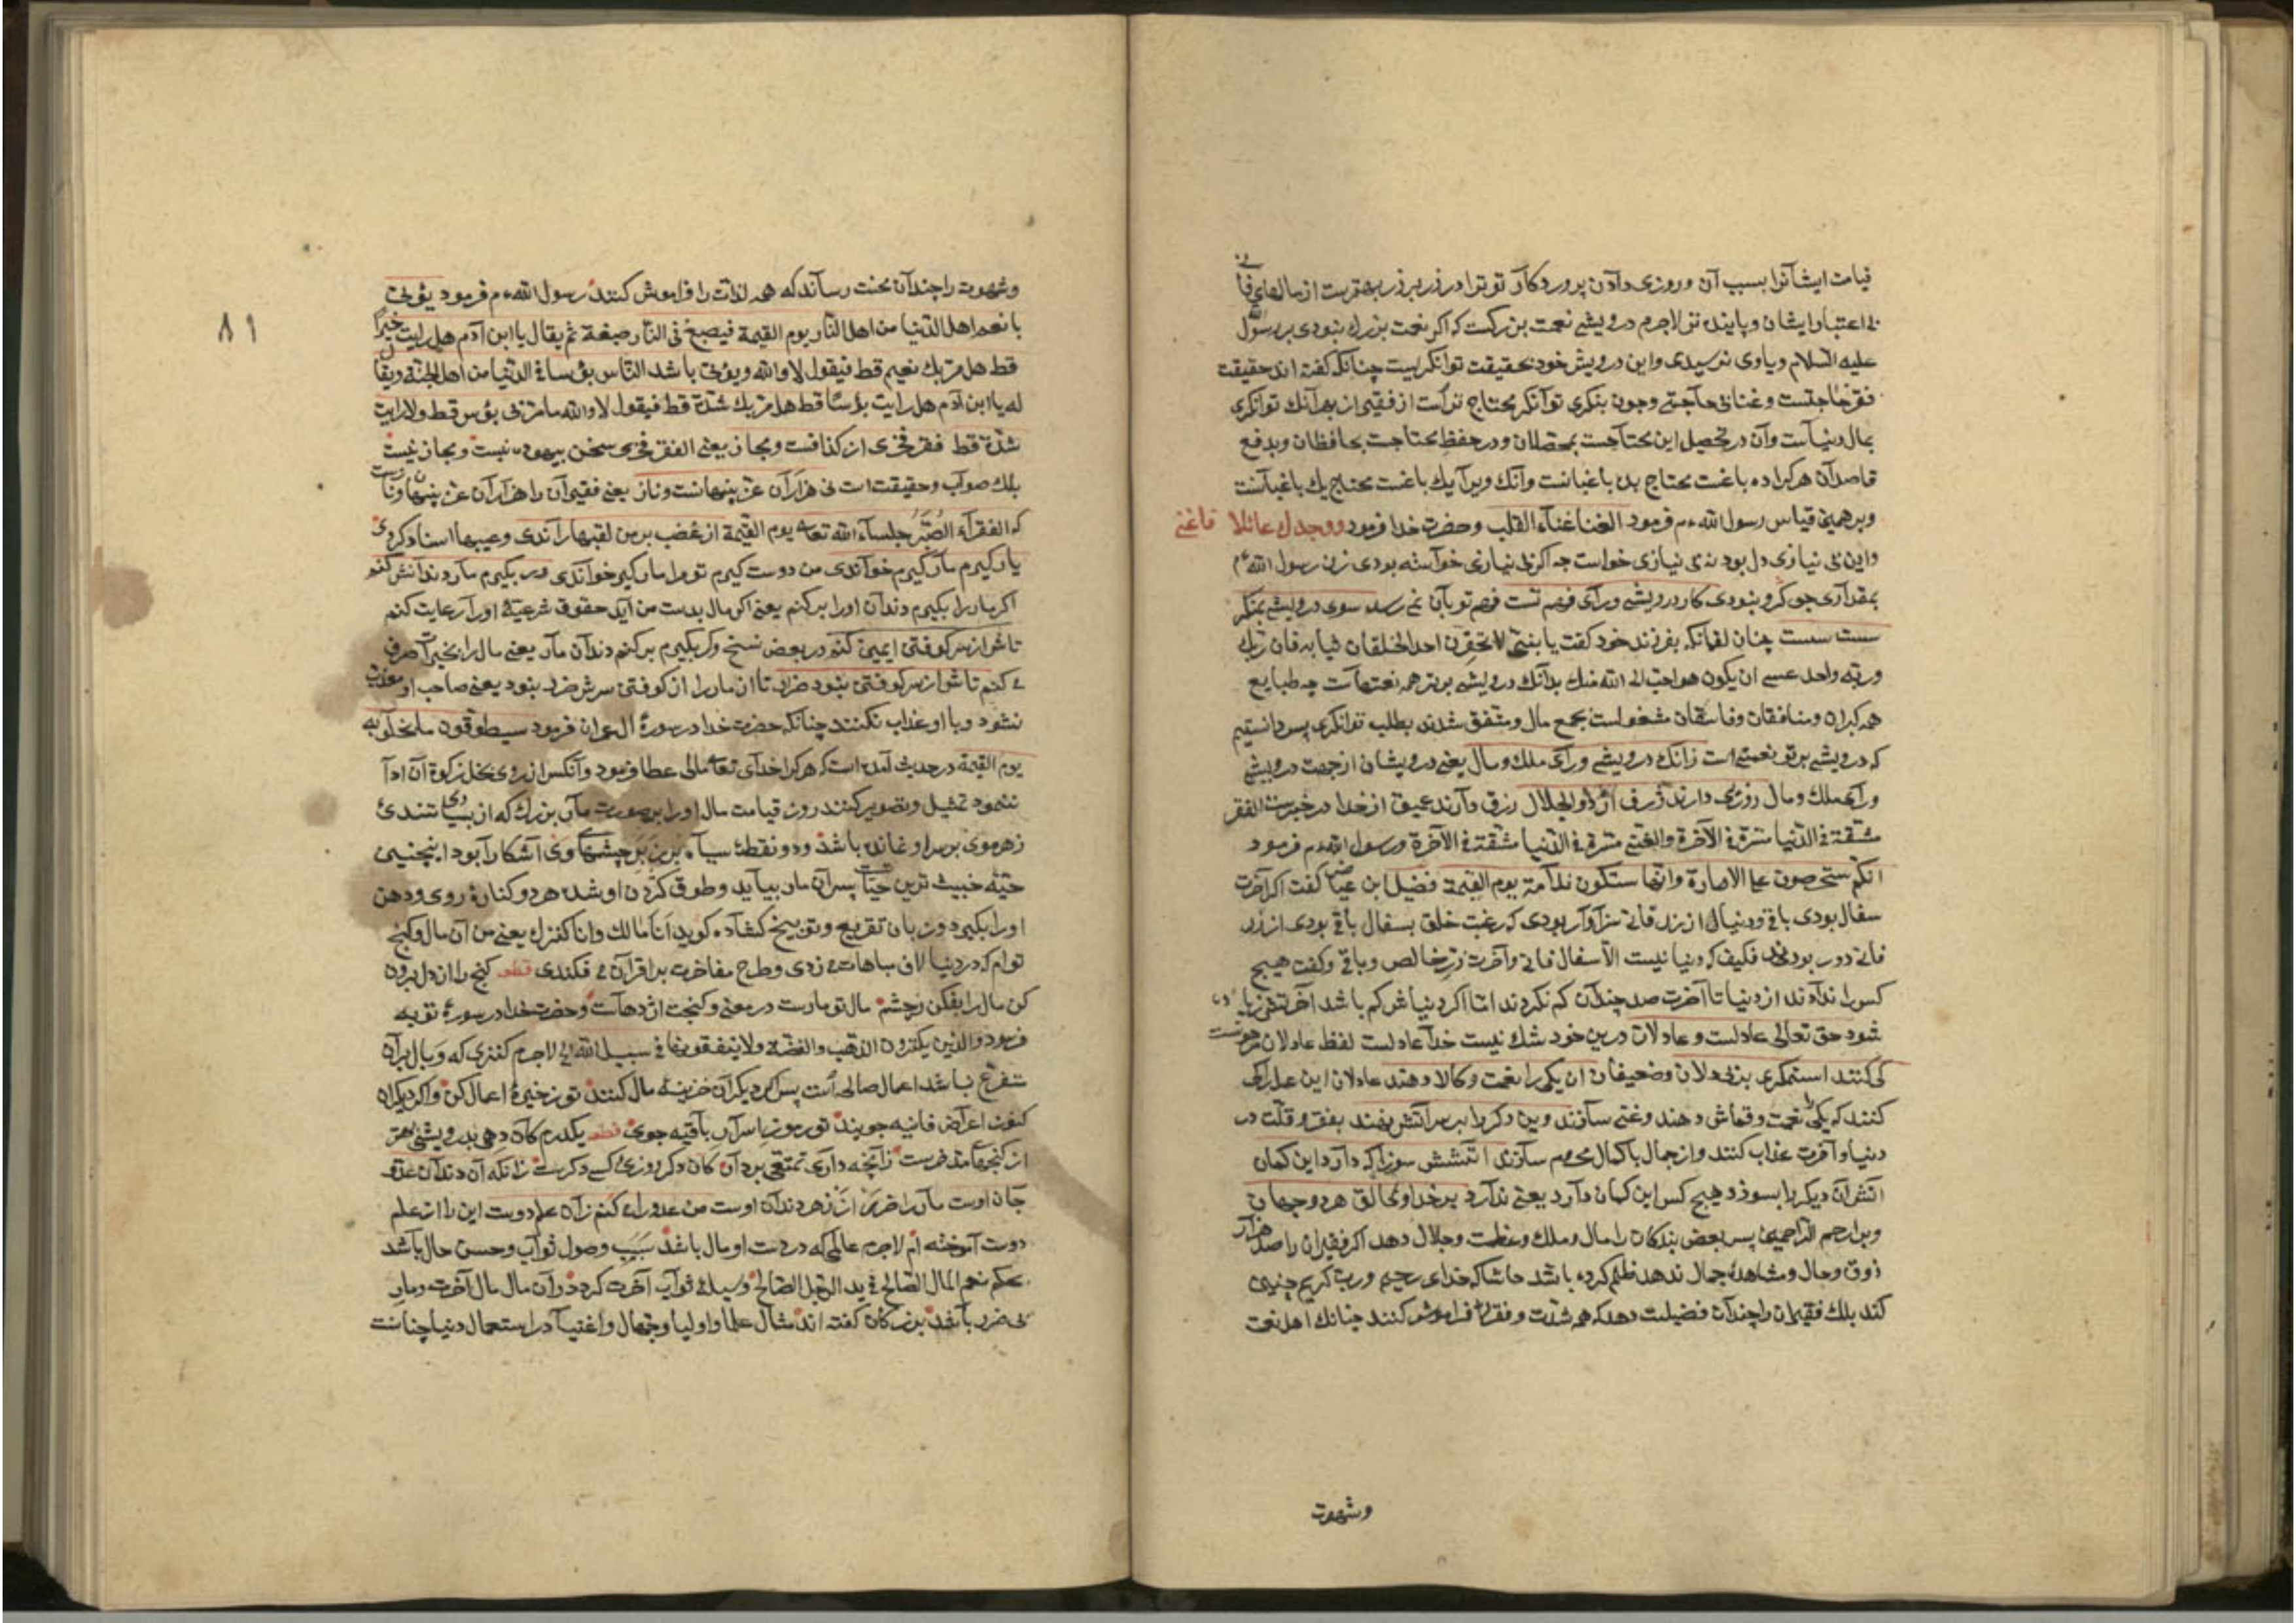 قیامت ایشانرا بسبب آن و روزی دادن پروردکار تو ترا در روز بروز بهترست از مالهای فانی
بی اعتبار ایشان و پاینده تر لاجرم درویشی نعمت بزرکست که اکر نعمت بزرك نبودی بر رسول الله
علیه السلام و یاوی نرسیدی و این درویش خود بحقیقت توانکریست چنانکه کفته اند حقیقت
فقر حاجتست و غنا بی حاجتی و چون بنکری توانکر محتاج ترست از فقیر از بهر آنك توانکری
بمال دنیاست و آن در تحصیل این محتاجست بمحصلان و در حفظ محتاجست بحافظان و بدفع
قاصدان هرکرا ده باغست محتاج بده باغبانست و آنك ویرا یك باغست محتاج یك باغبانست
و برهمین قیاس رسول الله ءم فرمود الغنا غناء القلب و حضرت خدا فرمود ووجدك عائلا فاغنی
و این بی نیازی دل بود نه بی نیازی خواست چه اکر بی نیازی خواسته بودی زن رسول الله ءم
بمقداری جو کرو نبودی کار درویشی ورای فهم تست فهم تو بآن نمی رسد سوی درویشی بمنکر
سست سست چنان لقمانکه بفرزند خود کفت یا بنی لا تحقرن احدا لخلقان ثیابه فان ربك
و ربه واحد عسی ان یکون هو احب الی الله منك بدآنك درویشی برتر همه نعمتهاست چه طبایع
همه کبران و منافقان و فاسقان مشغولست بجمع مال و متفق شدند بطلب توانکری پس دانستیم
که درویشی برتر نعمتی است زانك درویشی ورای ملك و مال یعنی درویشان از جهت درویشی
ورای ملك و مال روزئی دارند ژرف از ذو الجلال رزق دارند عمیق از خدا در خبرست الفقر
مشقة فی الدنیا مسرة فی الآخرة والغنی مسرة فی الدنیا مشقة فی الآخرة و رسول الله ءم فرمود
انکم ستحرصون علی الامارة وانها ستکون ندامة یوم القیمة فضیل ابن عیاض کفت اکر آخرت
سفال بودی باقی و دنیا از زر فانی سزاوار بودی که رغبت خلق بسفال باقی بودی از زر
فانی دور بودندی فکیف که دنیا نیست الا سفال فانی و آخرت زر خالص و باقی و کفت هیچ
کس را ندادند از دنیا تا آخرت صد چندان کم نکردند اما اکر دنیاش کم باشد آخرتش زیاده
شود حق تعالی عادلست و عادلان درین خود شك نیست خدا عادلست لفظ عادلان مرهونست
کی کنند استمکری بر بی دلان و ضعیفان آن یکی را نعمت و کالا دهند عادلان این عدل کی
کنند که یکی را نعمت و قماش دهند و غنی سازند وین دکر را بر سر آتش نهند بفقر و قلت در
دنیا و آخرت عذاب کنند و از جمال باکمال محروم سازند آتشش سوزا که دارد این کمان
آتش آن دیکر را بسوزد هیچ کس این کمان دارد یعنی ندارد بر خدا و خالق هر دو جهان
و بر ارحم الراحمین پس بعض بندکان را مال و ملك و عظمت و جلال دهد اکر فقیران را صد هزار
ذوق و حال و مشاهدهٔ جمال ندهد ظلم کرده باشد حاشا که خدای رحیم و رب کریم چنین
کند بلك فقیران را چندان فضیلت دهد که همه شدت و فقر را فراموش کنند چنانك اهل نعمت
وشهوت
و شهوت را چندان محنت رساند که همه لذات را فراموش کنند رسول الله ءم فرمود یؤتی
بانعم اهل الدنیا من اهل النار یوم القیمة فیصبغ فی النار صبغة ثم یقال یا ابن آدم هل رایت خیرا
قط هل مر بك نعیم قط فیقول لا والله و یؤتی باشد الناس بؤسا فی الدنیا من اهل الجنة ویقال
له یا ابن آدم هل رایت بؤسا قط هل مر بك شدة قط فیقول لا والله ما مر بی بؤس قط ولا رایت
شدة قط فقر فخری از کذافست و مجاز یعنی الفقر فخری سخن بیهوده نیست و مجاز نیست
بلك صواب و حقیقت است نی هزاران عز پنهانست و ناز یعنی فقیران را هزاران عز پنهان و نازست
که الفقراء الصبر جلساء الله تعالی یوم القیمة از غضب بر من لقبها راندی و عیبها اسناد کردی
یارکیرم مارکیرم خواندی من دوست کیرم تو مرا مارکیر خواندی ور بکیرم مار دندانش کنم
اکر مار را بکیرم دندان او را برکنم یعنی اکر مال بدست من آید حقوق شرعیهٔ او را رعایت کنم
تاش از سرکوفتن ایمن کنم در بعض نسخ وکر بکیرم برکنم دندان مار یعنی مال را بخیرات صرف
می کنم تاش از سرکوفتن نبود ضرر تا آن مار را از کوفتن سرش ضرر نبود یعنی صاحب او معذب
نشود و با او عذاب نکنند چنانکه حضرت خدا در سورهٔ ال عمران فرمود سیطوقون ما بخلوا به
یوم القیمة در حدیث آمده است که هرکرا خدای تعالی مالی عطا فرمود و آنکس از روی بخل زکوة آن ادا
ننمود تمثیل و تصویر کنند روز قیامت مال او را بر صورت مار بزرك که از بسیاری تندئ
زهر موی بر سر او نمانده باشد و دو نقطهٔ سیاه برزبر چشمهای وی آشکارا بود اینچنین
حیه خبیث ترین حیات پس آن مار بیاید و طوق کردن او شده هر دو کنارهٔ روی و دهن
او را بکیرد و زبان تقریع و توبیخ کشاده کوید انا مالك وانا کنزك یعنی من آن مال و کنج
توام که در دنیا لاف مباهات می زدی و طرح مفاخرت بر اقران می فکندی قطعه کنج را از دل برون
کن مال را بفکن ز چشم مال تو مارست در معنی و کنجت اژدهاست و حضرت خدا در سورهٔ توبه
فرمود والذین یکنزون الذهب والفضة ولا ینفقونها فی سبیل الله الی لاجرم کنزی که وبال بران
متفرع نباشد اعمال صالحه است پس اکر دیکران خزینهٔ مال کنند تو ذخیرهٔ اعمال کن واکر دیکران
کنوز اعراض فانیه جویند تو رموز اسرار باقیه جوی قطعه یکدرم کان دهی بدرویشی بهتر
از کنجهای مدخرست زانچه داری تمتعی بردار کان دکر روزئ کسی دکرست زانکه آن دندان عدو
جان اوست مار را ضرر از زهر دندان اوست من عدو را می کنم زان علم دوست این را از علم
دوست آموخته ام لاجرم عالمی که در دست او مال باشد سبب وصول ثواب و حسن حال باشد
بحکم نعم المال الصالح فی ید الرجل الصالح وسیلهٔ ثواب آخرت کردد و آن مال مال آخرت و مار
بی ضرر باشد بزرکان کفته اند مثال علما و اولیا و جهال و اغنیا در استعمال دنیا چنانست
٨١